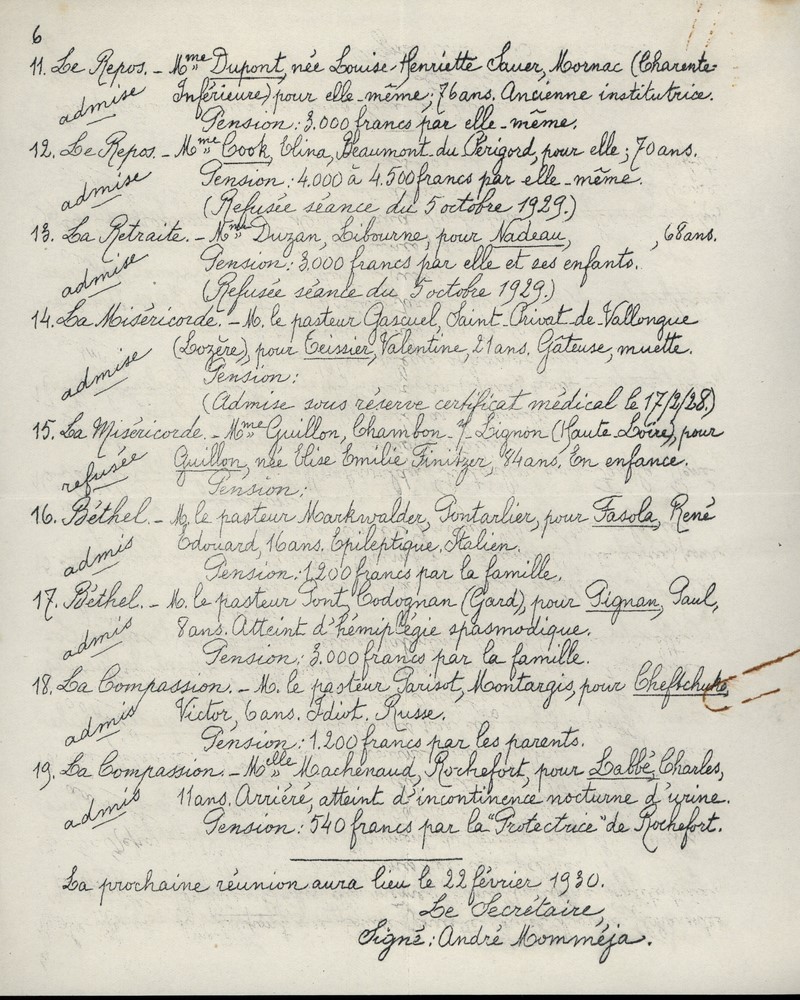 6
11. Le Repos. - Mme Dupont, née Louise-Henriette Sauer, Mornac (Charente-
admise Inférieure) pour elle-même; 76 ans. Ancienne institutrice.
Pension: 3.000 francs par elle-même.
12. Le Repos. - Mme Cook, Elina, Beaumont-du-Périgord, pour elle; 70 ans.
admise Pension: 4.000 à 4.500 francs par elle-même.
(Refusée séance du 5 octobre 1929.)
13. La Retraite. - Mme Duzan, Libourne, pour Nadeau, , 68 ans.
admise Pension: 3.000 francs par elle et ses enfants.
(Refusée séance du 5 octobre 1929.)
14. La Miséricorde. - M. le pasteur Gascuel, Saint-Privat-de-Vallongue
(Lozère), pour Teissier, Valentine, 21 ans. Gâteuse, muette.
admise Pension:
(Admise sous réserve certificat médical le 17/2/28.)
15. La Miséricorde. - Mme Guillon, Chambon-s/-Lignon (Haute-Loire), pour
refusée Guillon, née Elise Emilie Finitzer, 84 ans. En enfance.
Pension:
16. Béthel. - M. le pasteur Markwalder, Pontarlier, pour Fasola, René
admis Edouard, 16 ans. Epileptique. Italien.
Pension: 1.200 francs par la famille.
17. Béthel. - M. le pasteur Pont, Codognan (Gard), pour Pignan, Paul,
admis 8 ans. Atteint d'hémiplégie spasmodique.
Pension: 3.000 francs par la famille.
18. La Compassion. - M. le pasteur Parisot, Montargis, pour Cheftchuke,
admis Victor, 6 ans. Idiot. Russe.
Pension: 1.200 francs par les parents.
19. La Compassion. - Melle Machenaud, Rochefort, pour Labbé, Charles,
admis 11 ans. Arriéré, atteint d'incontinence nocturne d'urine.
Pension: 540 francs par la "Protectrice" de Rochefort.
La prochaine réunion aura lieu le 22 février 1930.
Le Secrétaire,
Signé: André Momméja.